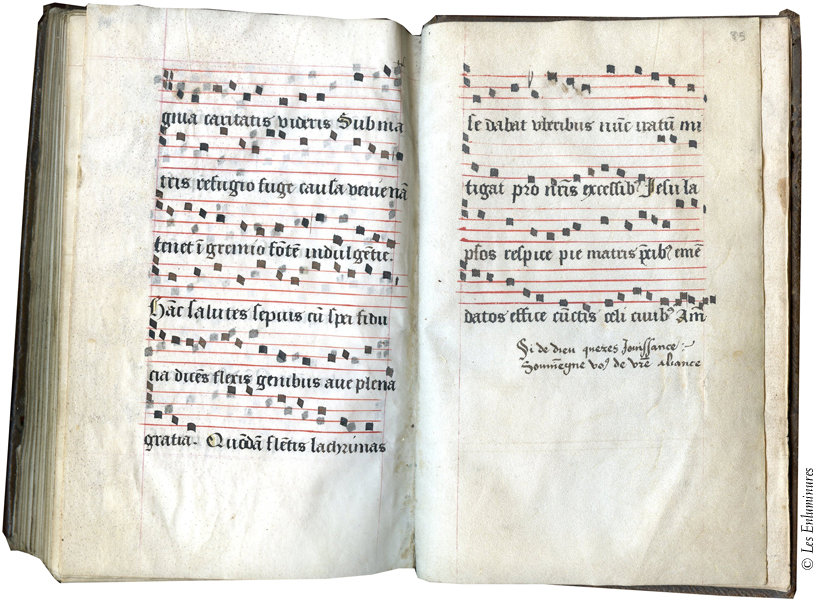 giua caritatis videris Sub ma
tris refugio fuge causa veniē nā
tenet ī gremio fōtē indulgētie.
Hāc salutes sepius cū spei fidu
cia dicēs flexis genibus aue plena
gratia. Quōdā flētis lachrimas
85
se dabat vberibus nūc natūm mi
tigat pro nr̄is excessibꝰ Jesu la
psos respice pie matris p̄cibꝰ emē
datos effice cūctis celi ciuibꝰ Am
Si de dieu queres Jouissance :~
Souuiegne voꝰ de vr̄e aliance
© Les Enluminures